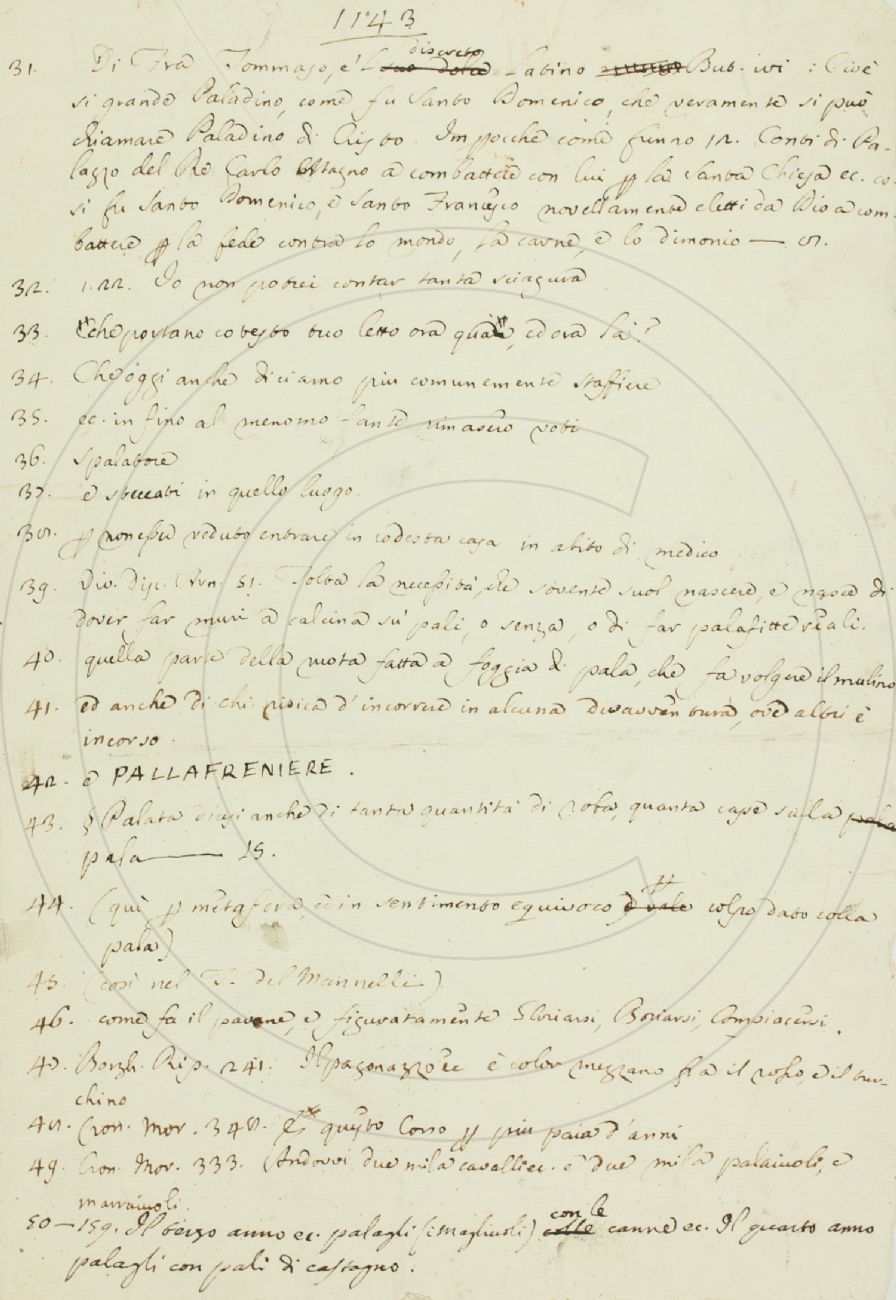 1143
31. Di Frà Tommaso, e 'l discreto latino But. ivi: Cioè
si grande Paladino, come fu Santo Domenico, che veramente si può
chiamare Paladino di Cristo. Impocchè come funno 12. Conti di Pa-
lazzo del Re Carlo Magno a combattere con lui p la Santa Chiesa ec. co-
si fu Santo Domenico, e Santo Francesco novellamente eletti da Dio a com-
battere p la fede contra lo mondo, la carne, e lo dimonio —
32. 1.22. Io non potrei contar tanta sciagura
33. che portano cotesto tuo letto ora quà, ed ora là?
34. Che oggi anche diciamo più comunemente Staffiere
35. ec. in fino al menomo fante rimasero voti
36. Spalatore
37. e steccati in quello luogo.
38. p non esser veduto entrare in codesta casa in abito di medico
39. Viv. Disc. Arn. 51. Tolta la necessità, che sovente suol nascere, e nasce di
dover far muri a calcina su' pali, o senza, o di far palafitte reali.
40. quella parte della ruota fatta a foggia di pala, che fa volgere il mulino
41. ed anche di chi risica d'incorrere in alcuna disavventura, ove altri è
incorso.
42. e PALLAFRENIERE.
43. § Palata dicesi anche di tanta quantità di roba, quanta cape sulla pala
pala — 15.
44. (quì p metafora, ed in sentimento equivoco p vale colpo dato colla
pala)
45. (così nel T. del Mannelli)
46. come fa il pavone, e figuratamente Gloriarsi, Boriarsi, Compiacersi.
47. Borgh. Rip. 241. Il pagonazzo ec. è color mezzano fra il rosso, e il tur-
chino
48. Cron. Mor. 348. E questo Corso p più paia d'anni
49. Cron. Mor. 333. Andovvi due mila cavalli ec. e due mila palaiuoli, e
marraiuoli.
50 — 159. Il terzo anno ec. palagli (i Magliuoli) con le canne ec. Il quarto anno
palagli con pali di castagno.